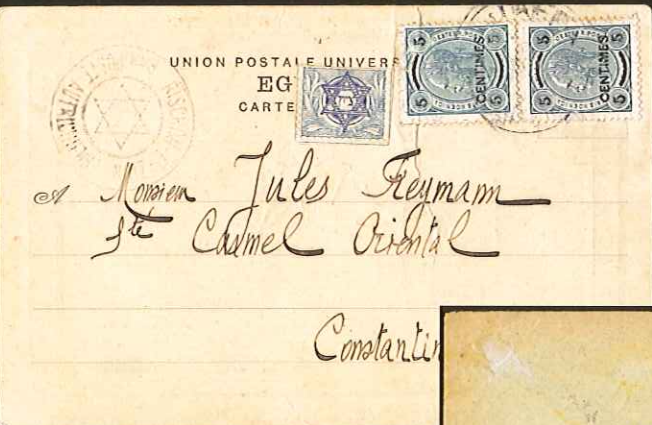 UNION POSTALE UNIVERS
EG
CARTE
5 5 CENTIMES 5 5
5 5 CENTIMES 5 5
A Monsieur Jules Freymann
Sté Carmel Oriental
Constantin